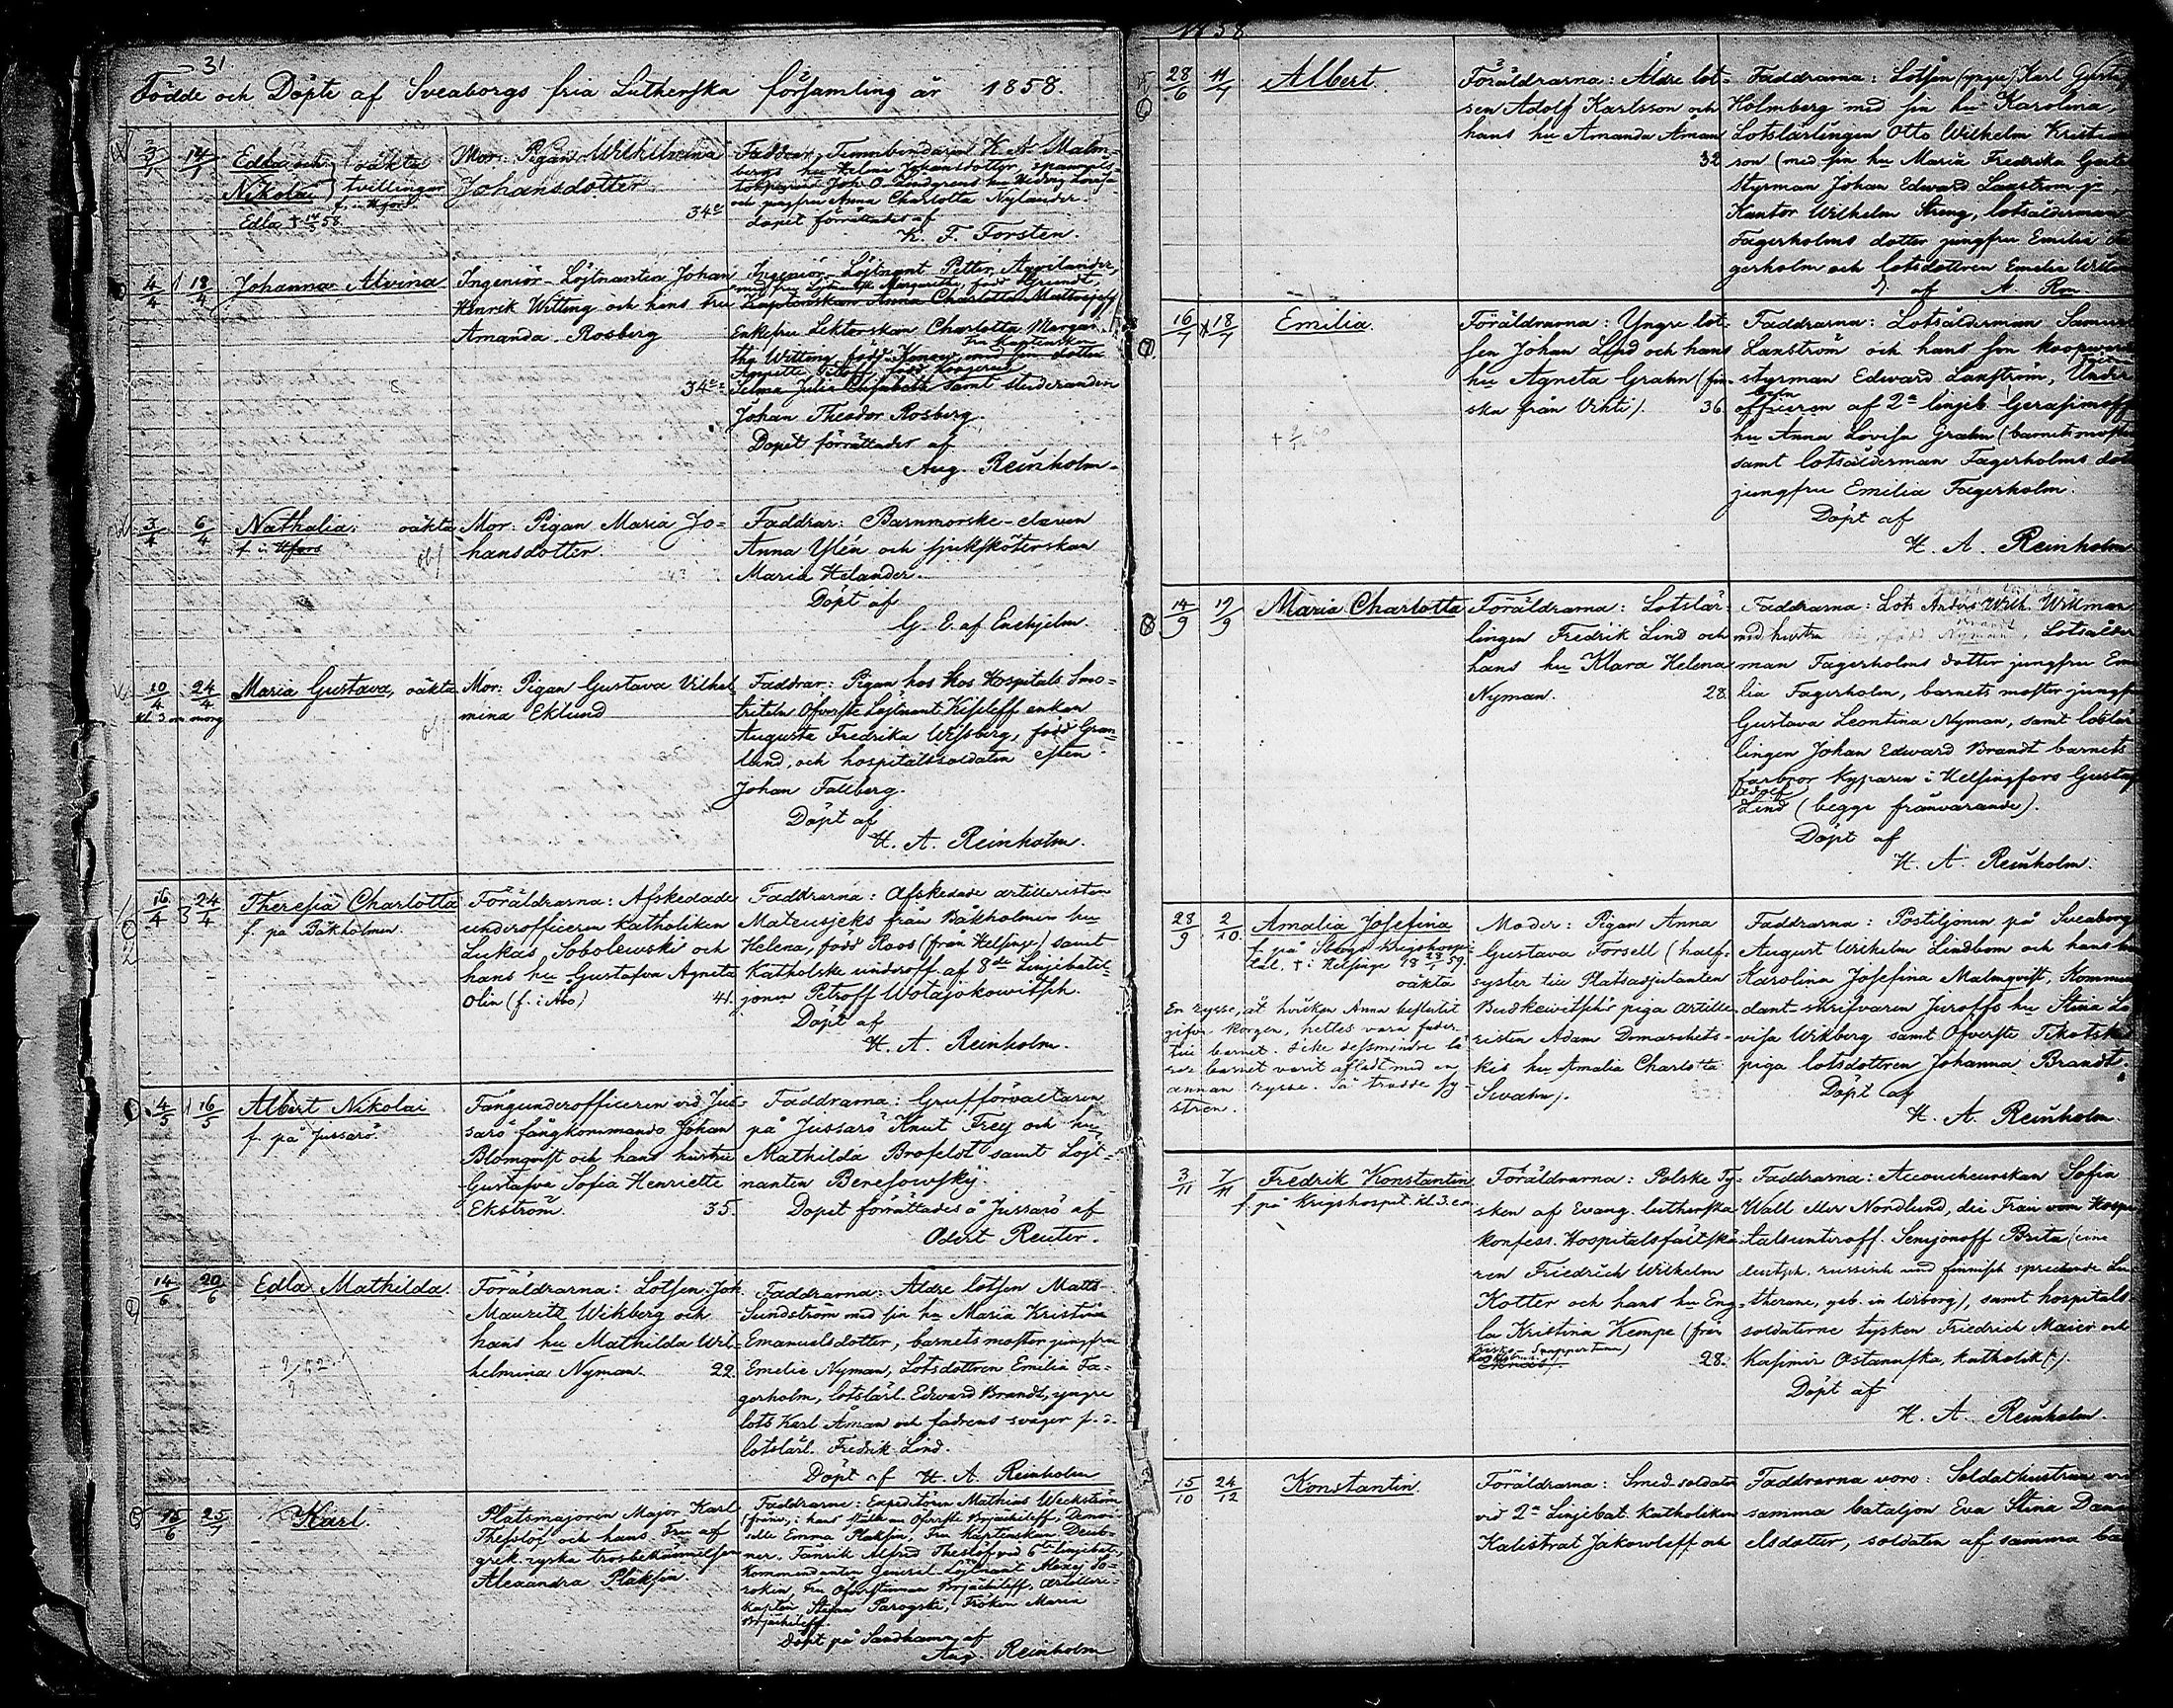 31
Födde och Döpte af Sveaborgs fria Lutherska församling år 1858.
14/1
Edla och oäkta
Nikolai tvillingar
f. i Hfors
Edla † 58
Mor: Pigan Wilhelmina
Johansdotter
34
Faddrar, Tunnbindaren K. A. Malm-
bergs hu Helena Johansdotter,
Joh. O. Lindgrens hu Hedvig Lovisa
och jungfru Anna Charlotta Nylander.
Dopet förrättades af
K. F. Forsten.
4/4 1 18/4
Johanna Alvina
Ingeniör-Löjtnanten Johan
Henrik Witting och hans fru
Amanda Rosberg
34
Ingeniör-Löjtnant Petter
med fru Margaretha, född
Kaptenskan Anna Charlotta
Enkefru Lektorskan Charlotta Marga-
tha Witting, född med sin dotter
Selma Julia Elisabeth samt studeranden
Johan Theodor Rosberg.
Dopet förrättades af
Aug. Reinholm.
3/4 6/4
Nathalia. oäkta
f. i Hfors
Mor: Pigan Maria Jo-
hansdotter.
Faddrar: Barnmorske-eleven
Anna Ylén och sjuksköterskan
Maria Helander.
Döpt af
G. E. af Enehjelm.
10/4 24/4
kl. 3 om morg
Maria Gustava, oäkta
Mor: Pigan Gustava Vilhel-
mina Eklund
Faddrar: Pigan hos Hospitals Smo-
triteln Öfverste Löjtnant Kiseleff enkan
Augusta Fredrika Wissberg, född Gran-
lund, och hospitalssoldaten esten
Johan Fallberg.
Döpt af
H. A. Reinholm.
16/4 3 24/4
Theresia Charlotta
f. på Båkholmen.
Föräldrarna: Afskedade
underofficeren katholiken
Lukas Sobolewski och
hans hu Gustafva Agneta
Olin (f. i Åbo)
41.
Faddrarna: Afskedade artilleristen
Mateusjeks från Båkholmen hu
Helena, född Roos (från Helsinge) samt
Katholske underoff. af 8de Linjebatal-
jonen Petroff Wotajokowitsch.
Döpt af
H. A. Reinholm.
4/5 1 16/5
Albert Nikolai
f. på Jussarö.
Fångunderofficeren vid Jus-
sarö fångkommando Johan
Blomqvist och hans hustru
Gustafva Sofia Henriette
Ekström
35.
Faddrarna: Grufförvaltaren
på Jussarö Knut Frey och hu
Mathilda Brofeldt samt Löjt-
nanten Beresowsky.
Dopet förrättades å Jussarö af
Odert Reuter.
14/6 20/6
Edla Mathilda.
Föräldrarna: Lotsen Joh.
Mauritz Wikberg och
hans hu Mathilda Wil-
helmina Nyman.
22.
Faddrarna: Äldre lotsen Matts
Sundström med sin hu Maria Kristina
Emanuelsdotter, barnets moster jungfru
Emelie Nyman, Lotsdottren Emilia Fa-
gerholm, lotslärl. Edward Brandt, yngre
lots Karl Åman och fadrens svåger f. d.
lotslärl. Fredrik Lind.
Döpt af H. A. Reinholm
15/6 25/7
Karl.
Platsmajoren Major Karl
Thesslöf och hans Fru af
grek. ryska trosbekännelsen
Alexandra Plaksin
Faddrarne: Expeditören Mathias Weckström
(frånv.; i hans ställe an Öfverste Brjächileff, Demoi-
selle Emma Plaksin, Fru Kaptenskan
Fänrik Alfred Theslöf vid 6te linjebat.,
Kommendanten General-Löjtnant Alexej So-
rokin, Fru Öfverstinnan Brjächileff, artilleri-
kapten Parogski, Fröken Maria
Brjächileff.
Döpt på Sandhamn af
Aug. Reinholm
1858
28/6 11/7
Albert.
Föräldrarna: Äldre lot-
sen Adolf Karlsson och
hans hu Amanda Åman
32
Faddrarna: Lotsen (yngre) Karl Gustaf
Holmberg med sin hu Karolina,
Lotslärlingen Otto Wilhelm Kristian
son (med sin hu Maria Fredrika
Styrman Johan Edward Lanström
Kantor Wilhelm Streng, lotsålderman
Fagerholms dotter jungfru Emilia Fa-
gerholm och lotsdottren Emelie
D af A. Rm.
16/7 18/7
Emilia.
Föräldrarna: Yngre lot-
sen Johan Lind och hans
hu Agneta Grahn (fin-
ska från Vihti).
36.
Faddrarna: Lotsålderman Samuel
Lanström och hans son
styrman Edward Lanström, Under
officeren af 2a linjeb. Gerasimoff
hu Anna Lovisa Grahn (barnets moster
samt lotsålderman Fagerholms dot
jungfru Emilia Fagerholm.
Döpt af
H. A. Reinholm
14/9 19/9
Maria Charlotta
Föräldrarna: Lotslär-
lingen Fredrik Lind och
hans hu Klara Helena
Nyman.
28.
Faddrarna: Lots Anders Wilh. Wikman
med hustru Brandt, Lotsålder
man Fagerholms dotter jungfru Emi
lia Fagerholm, barnets moster jungfr
Gustava Leontina Nyman, samt lotslär
lingen Johan Edward Brandt barnets
farbror kyparen i Helsingfors Gustaf
Adolf
Lind (begge frånvarande).
Döpt af
H. A. Reinholm.
28/9 2/10
Amalia Josefina
f. på Sborgs krigshospi-
tal. † i Helsinge 59.
oäkta
En rysse, åt hvilken Anna beslutit
gifva korgen, heltes vara fader
till barnet. Icke dessmindre lä-
rer barnet varit afladt med en
annan rysse. Så trodde sy-
stren.
Moder: Pigan Anna
Gustava Forsell (half-
syster till Platsadjutanten
Budkewitsch's piga artille-
risten Adam Domaschets-
kis hu Amalia Charlotta
Swahn).
Faddrarna: Postiljonen på Sveaborg
August Wilhelm Lindbom och hans hu
Karolina Josefina Malmqvist, Kommen
dant-skrifvaren Juroffs hu Stina Lo
visa Wikberg samt Öfverste
piga lotsdottren Johanna Brandt.
Döpt af
H. A. Reinholm.
3/11 7/11
Fredrik Konstantin
f. på Krigshospit. kl. 3. e.m
Föräldrarna: Polske Ty-
sken af Evang. lutherska
konfess. Hospitalsfältskä-
ren Friedrich Wilhelm
Kotter och hans hu Eng-
la Kristina Kempe (från
Snappertuna)
28.
Faddrarna: Accoucheurskan Sofia
Wall eller Nordlund, die Frau vom Hospi
talsunteroff. Semjonoff Brita (eine
deutsch. russisch und finnisch sprechende Lu
therane, geb. in Wiborg), samt hospitals
soldaterne tysken Friedrich Maier och
Kasimir Ostanufka, katholik (?).
Döpt af
H. A. Reinholm.
15/10 24/12
Konstantin.
Föräldrarna: Smed-soldaten
vid 2a Linjebat. katholiken
Kalistrat Jakowleff och
Faddrarna voro: Soldathustrun vid
samma bataljon Eva Stina Dani
elsdotter, soldaten af samma ba